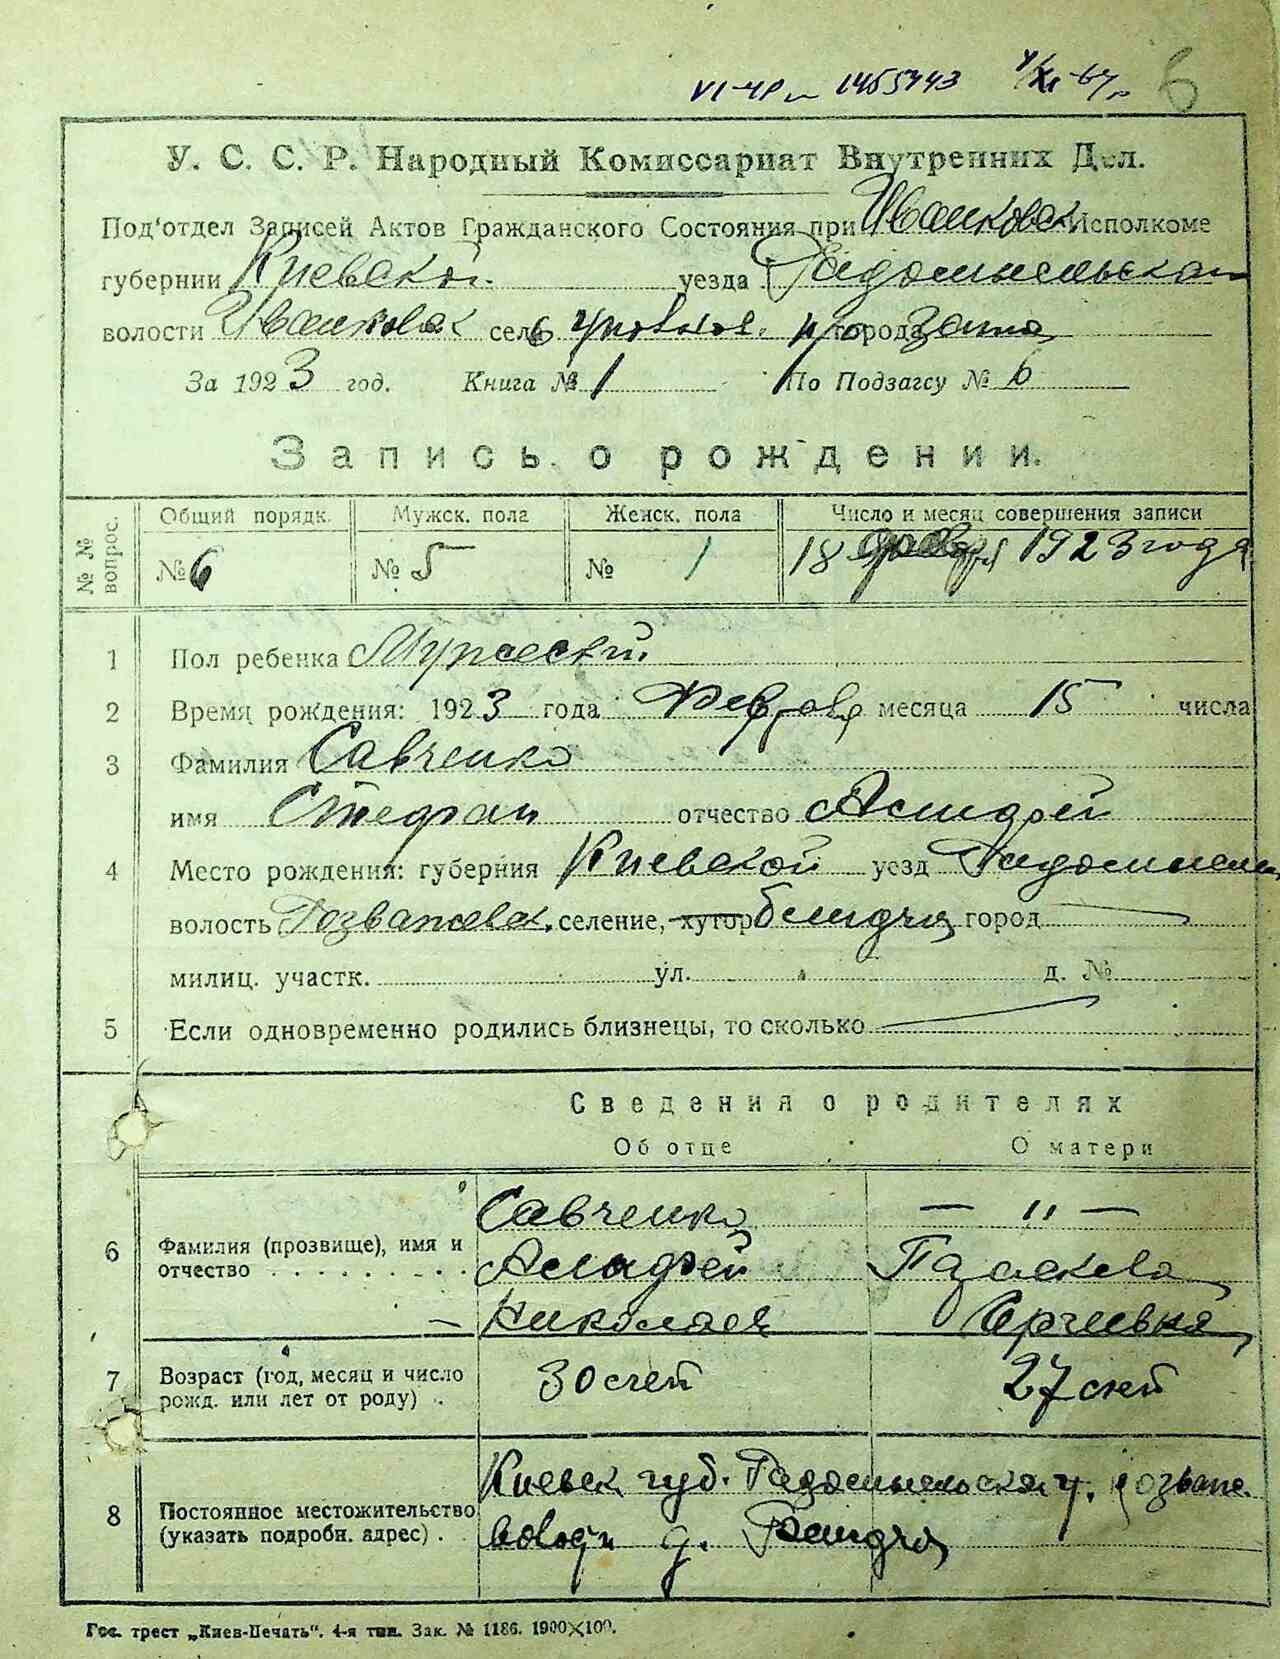 1455443
6
У. С. С. Р. Народный Комиссариат Внутренних Дел.
Под'отдел Записей Актов Гражданского Состояния при Иванковск Исполкоме
губернии Киевской уезда Радомысльском
волости Иванковск села города
За 1923 год. Книга № 1 По Подзагсу № 6
Запись о рождении.
№№ вопрос. Общий порядк. Мужск. пола Женск. пола Число и месяц совершения записи
№ 6 № 5 № 1 18 1923 года
1 Пол ребенка Мужеский
2 Время рождения: 1923 года Февраля месяца 15 числа
3 Фамилия Савченко
имя Стефан отчество Андрей
4 Место рождения: губерния Киевской уезд Радомысль
волость Розважевск. селение, хутор город
милиц. участк. ул. д. №
5 Если одновременно родились близнецы, то сколько
Сведения о родителях
Об отце О матери
Савченко — " —
6 Фамилия (прозвище), имя и отчество Андрей Параскева
Николаев Сергиевна
7 Возраст (год, месяц и число рожд. или лет от роду) 30 лет 27 лет
8 Постоянное местожительство (указать подробн. адрес) Киевск губ. Радомысльском у. Розваже.
д.
Гос. трест „Киев-Печать". 4-я тип. Зак. № 1186. 1900×100.